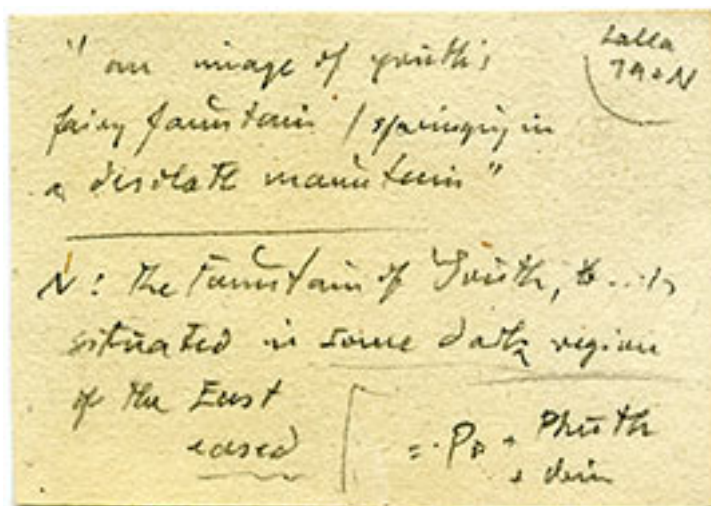 Lalla
790N
"an image of youth's
fairy fountain / springing in
a desolate mountain"
N: The Fountain of Youth,
situated in some dark region
of the East